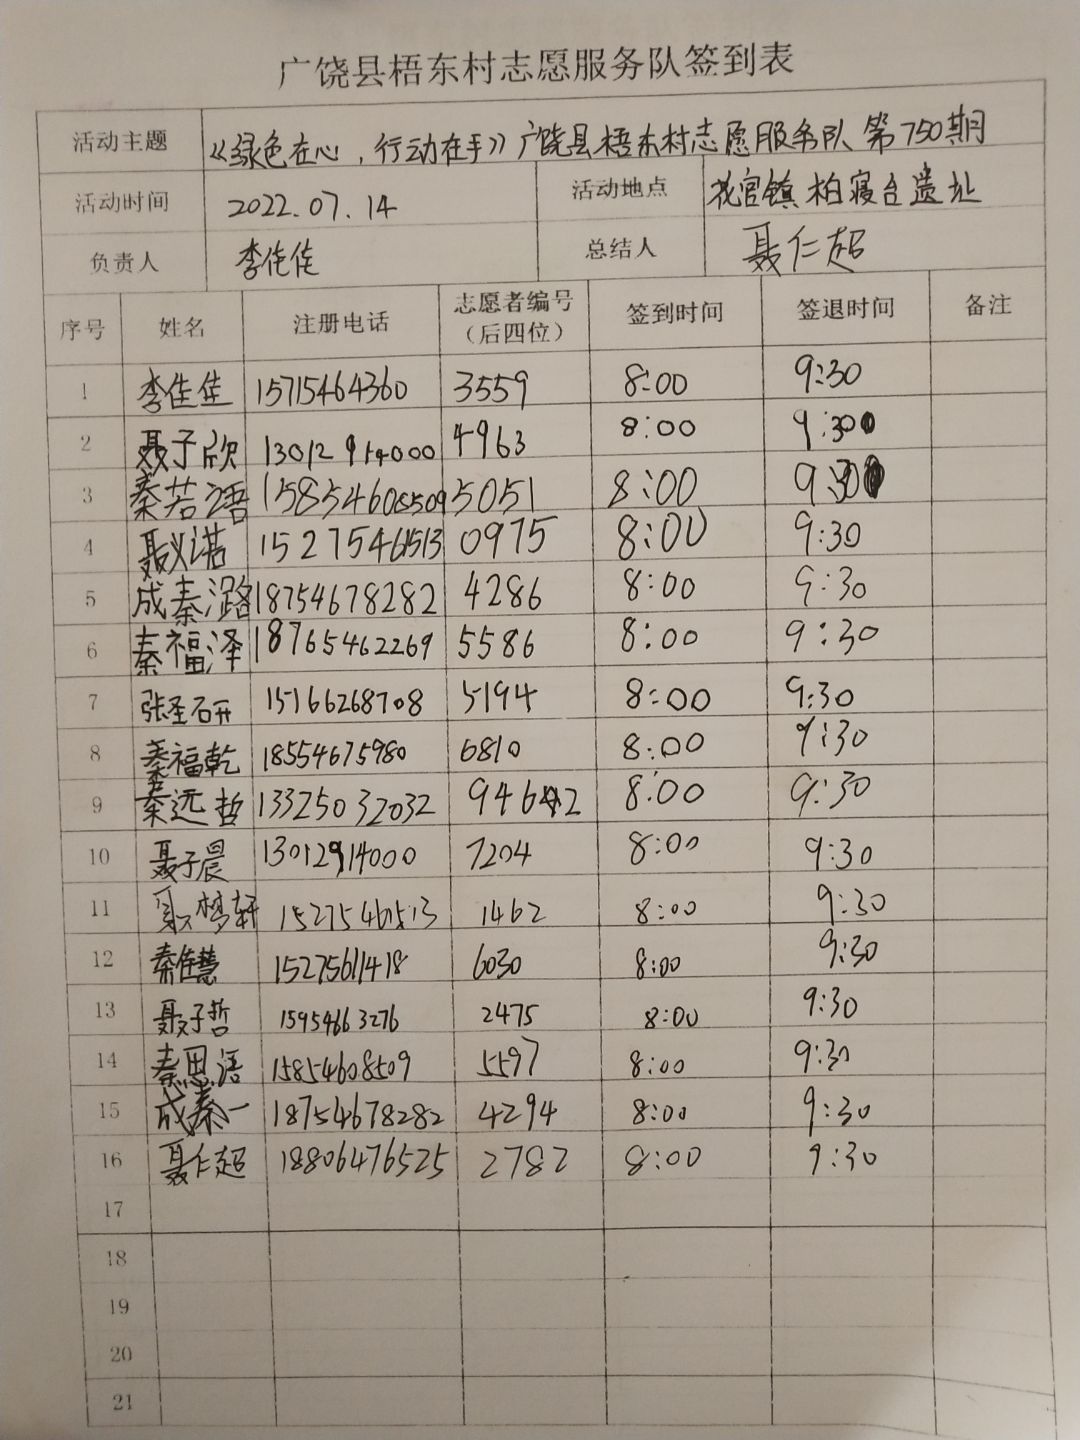 广饶县梧东村志愿服务队签到表
活动主题 《绿色在心，行动在手》广饶县梧东村志愿服务队 第750期
活动时间 2022.07.14 活动地点 花官镇柏寝台遗址
负责人 李佳佳 总结人 聂仁超
序号 姓名 注册电话 志愿者编号（后四位） 签到时间 签退时间 备注
1 李佳佳 15715464360 3559 8:00 9:30
2 聂子欣 13012914000 4963 8:00 9:30
3 秦若语 15854608509 5051 8:00 9:30
4 聂义诺 15275461513 0975 8:00 9:30
5 成秦潞 18754678282 4286 8:00 9:30
6 秦福泽 18765462269 5586 8:00 9:30
7 张圣研 15166268708 5194 8:00 9:30
8 秦福乾 18554675980 6810 8:00 9:30
9 秦远哲 13325032032 9462 8:00 9:30
10 聂子晨 13012914000 7204 8:00 9:30
11 聂梦轩 15275461513 1462 8:00 9:30
12 秦佳慧 15275611418 6030 8:00 9:30
13 聂子哲 15954663276 2475 8:00 9:30
14 秦思语 15854608509 5597 8:00 9:30
15 成秦一 18754678282 4294 8:00 9:30
16 聂仁超 18806476525 2782 8:00 9:30
17
18
19
20
21